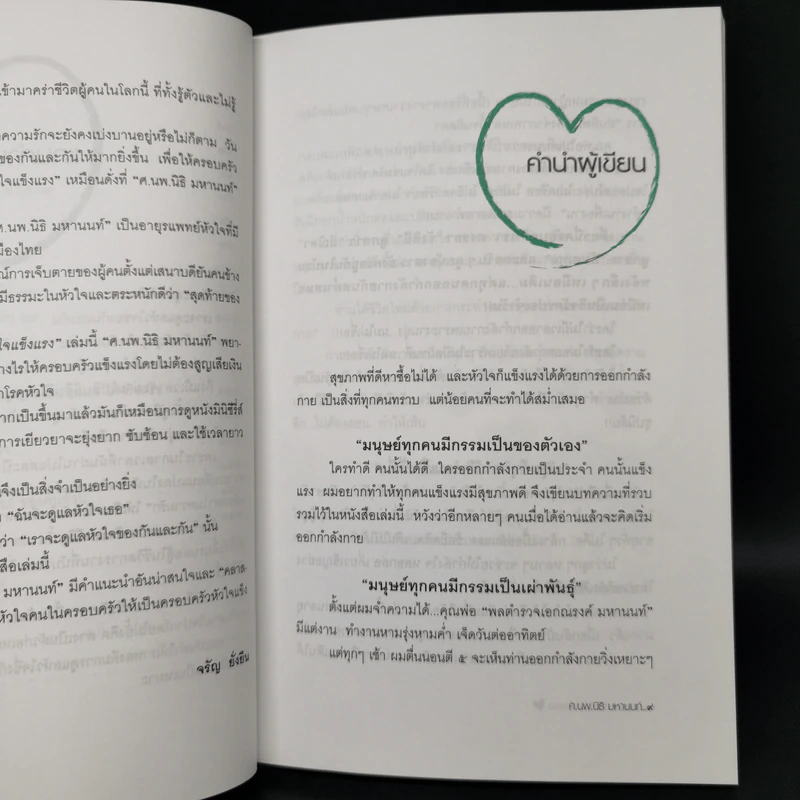 เข้ามาคร่าชีวิตผู้คนในโลกนี้ ที่ทั้งรู้ตัวและไม่รู้
ความรักจะยังคงเบ่งบานอยู่หรือไม่ก็ตาม วัน
ของกันและกันให้มากยิ่งขึ้น เพื่อให้ครอบครัว
ใจแข็งแรง” เหมือนดั่งที่ “ศ.นพ.นิธิ มหานนท์”
ศ.นพ.นิธิ มหานนท์” เป็นอายุรแพทย์หัวใจที่มี
เมืองไทย
ณ์การเจ็บตายของผู้คนตั้งแต่เสนาบดียันคนข้าง
มีธรรมะในหัวใจและตระหนักดีว่า “สุดท้ายของ
ใจแข็งแรง” เล่มนี้ “ศ.นพ.นิธิ มหานนท์” พยา-
างไรให้ครอบครัวแข็งแรงโดยไม่ต้องสูญเสียเงิน
าโรคหัวใจ
ากเป็นขึ้นมาแล้วมันก็เหมือนการดูหนังมินิซีรี่ส์
การเยียวยาจะยุ่งยาก ซับซ้อน และใช้เวลายาว
จึงเป็นสิ่งจำเป็นอย่างยิ่ง
“ฉันจะดูแลหัวใจเธอ”
ว่า “เราจะดูแลหัวใจของกันและกัน” นั้น
สือเล่มนี้
มหานนท์” มีคำแนะนำอันน่าสนใจและ “คลาส-
หัวใจคนในครอบครัวให้เป็นครอบครัวหัวใจแข็ง
จรัญ ยั่งยืน
คำนำผู้เขียน
สุขภาพที่ดีหาซื้อไม่ได้ และหัวใจก็แข็งแรงได้ด้วยการออกกำลัง
กาย เป็นสิ่งที่ทุกคนทราบ แต่น้อยคนที่จะทำได้สม่ำเสมอ
“มนุษย์ทุกคนมีกรรมเป็นของตัวเอง”
ใครทำดี คนนั้นได้ดี ใครออกกำลังกายเป็นประจำ คนนั้นแข็ง
แรง ผมอยากทำให้ทุกคนแข็งแรงมีสุขภาพดี จึงเขียนบทความที่รวบ
รวมไว้ในหนังสือเล่มนี้ หวังว่าอีกหลายๆ คนเมื่อได้อ่านแล้วจะคิดเริ่ม
ออกกำลังกาย
“มนุษย์ทุกคนมีกรรมเป็นเผ่าพันธุ์”
ตั้งแต่ผมจำความได้...คุณพ่อ “พลตำรวจเอกณรงค์ มหานนท์”
มีแต่งาน ทำงานหามรุ่งหามค่ำ เจ็ดวันต่ออาทิตย์
แต่ทุกๆ เช้า ผมตื่นนอนตี ๕ จะเห็นท่านออกกำลังกายวิ่งเหยาะๆ
ศ.นพ.นิธิ มหานนท์..๙